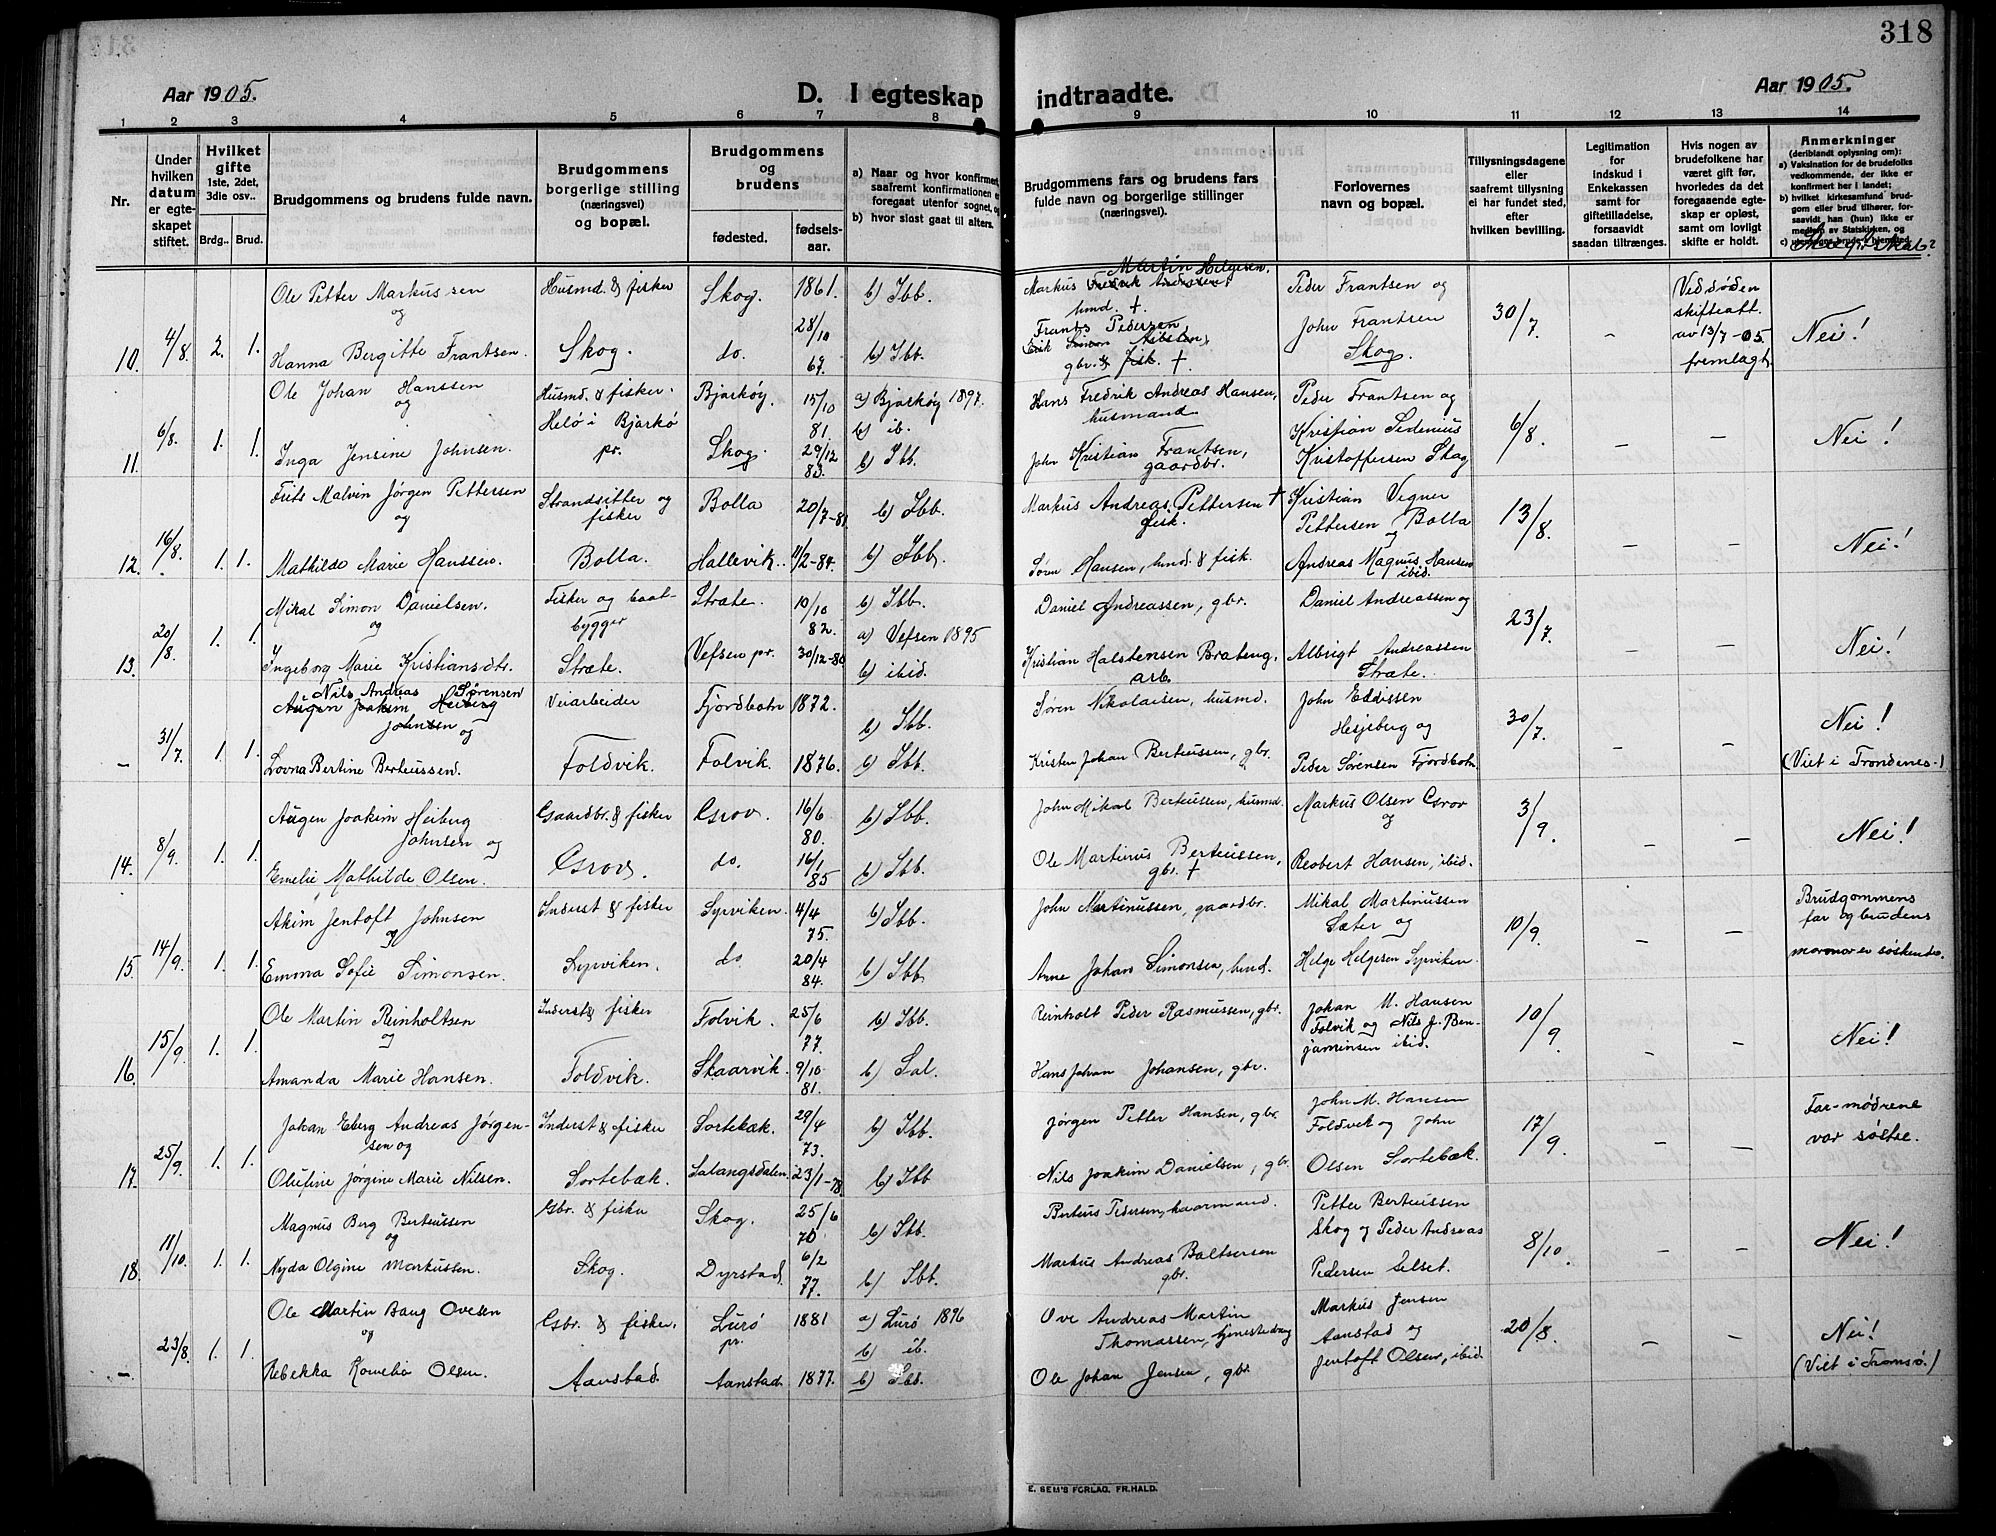 318
Aar 1905.
D. I egteskap indtraadte.
Aar 1905.
1 2 3 4 5 6 7 8 9 10 11 12 13 14
Nr.
Under hvilken datum er egteskapet stiftet.
Hvilket gifte 1ste, 2det, 3die osv..
Brdg.. Brud.
Brudgommens og brudens fulde navn.
Brudgommens borgerlige stilling (næringsvei) og bopæl.
Brudgommens og brudens
fødested. fødselsaar.
a) Naar og hvor konfirmert, saafremt konfirmationen er foregaat utenfor sognet, og
b) hvor sidst gaat til alters.
Brudgommens fars og brudens fars fulde navn og borgerlige stillinger (næringsvei).
Forlovernes navn og bopæl.
Tillysningsdagene eller saafremt tillysning ei har fundet sted, efter hvilken bevilling.
Legitimation for indskud i Enkekassen samt for giftetilladelse, forsaavidt saadan tiltrænges.
Hvis nogen av brudefolkene har været gift før, hvorledes da det foregaaende egteskap er opløst, samt om lovligt skifte er holdt.
Anmerkninger (deriblandt oplysning om):
a) Vaksination for de brudefolks vedkommende, der ikke er konfirmert her i landet;
b) hvilket kirkesamfund brudgom eller brud tilhører, forsaavidt han (hun) ikke er medlem av Statskirken, og
10. 4/8. 2. 1.
Ole Petter Markussen
og
Hanna Bergitte Frantsen.
Husmd. & fisker
Skog.
Skog. 1861.
do. 28/10 67.
b) Ibb.
b) Ibb.
Martin Helgesen.
Markus Fredrik Andersen,
hmd. †.
Frants Pedersen,
gbr. & fisk. †
Peder Frantsen og
John Frantsen
Skog.
30/7.
–
Ved døden
skifteatt.
av 13/7 - 05
fremlagt.
Nei!
11. 6/8. 1. 1.
Ole Johan Hanssen
og
Inga Jensine Johnsen.
Husmd. & fisker.
Helø i Bjarkø
pr.
Bjarkøy. 15/10 81.
Skog. 29/12 83.
a) Bjarkøy 1897.
b) ib.
b) Ibb.
Hans Fredrik Andreas Hansen,
husmand
John Kristian Frantsen,
gaardbr.
Peder Frantsen og
Kristian Sedenius
Kristoffersen Skog
6/8.
–
–
Nei!
12. 16/8. 1. 1.
Frits Malvin Jørgen Pettersen
og
Mathilde Marie Hanssen.
Strandsitter og
fisker
Bolla.
Bolla 20/7-81
Hallevik. 11/2-84.
b) Ibb.
b) Ibb.
Markus Andreas Pettersen †
fisk.
Søren Hansen, hmd. & fisk.
Kristian Vegner
Pettersen Bolla
og
Andreas Magnus Hansen
ibid.
13/8.
–
–
Nei!
13. 20/8. 1. 1.
Mikal Simon Danielsen.
og
Ingeborg Marie Kristiansdtr.
Fisker og baat-
bygger
Stræte.
Stræte. 10/10 82.
Vefsen pr. 30/12-80
b) Ibb.
a) Vefsen 1895
b) ibid.
Daniel Andreassen, gbr.
Kristian Halstensen Brateng,
arb.
Daniel Andreassen og
Albrigt Andreassen
Stræte.
23/7.
–
–
Nei!
– 31/7. 1. 1.
Nils Andreas Sørensen
Augen Joakim Heiberg
Johnsen og
Lovna Bertine Berteussend.
Veiarbeider
Foldvik.
Fjordbotn 1872.
Folvik. 1876.
b) Ibb.
b) Ibb.
Søren Nikolaisen, husmd.
Kristen Johan Berteussen, gbr.
John Edvissen
Hesjeberg og
Peder Sørensen Fjordbotn.
30/7.
–
–
Nei!
(Viet i Trondenes.)
14. 8/9. 1. 1.
Augen Joakim Heiberg
Johnsen og
Emelie Mathilde Olsen.
Gaardbr. & fisker
Grov.
Grov. 16/6 80.
do. 16/1 85
b) Ibb.
b) Ibb.
John Mikal Berteussen, husmd.
Ole Martinus Berteussen,
gbr. †
Markus Olsen Grov
og
Reobert Hansen, ibid.
3/9.
–
–
Nei!
15. 14/9. 1. 1.
Akim Jentoft Johnsen
og
Emma Sofie Simonsen.
Inderst & fisker
Syrviken.
Syrviken. 4/4 75.
do. 20/4 84.
b) Ibb.
b) Ibb
John Martinussen, gaardbr.
Arne Johan Simonsen, hmd.
Mikal Martinussen
Sæter og
Helge Helgesen Syrviken.
10/9.
–
–
Brudgommens
far og brudens
mormor er søskende.
16. 15/9. 1. 1.
Ole Martin Reinholtsen
og
Amanda Marie Hansen.
Inderst & fisker
Foldvik.
Folvik. 25/6 77.
Skaarvik. 9/10 81.
b) Ibb.
b) Sal.
Reinholt Peder Rasmussen, gbr.
Hans Johan Johansen, gbr.
Johan M. Hansen
Folvik og Nils J. Ben-
jaminsen ibid.
10/9.
–
–
Nei!
17. 25/9. 1. 1.
Johan Eberg Andreas Jørgen-
sen og
Olufine Jørgine Marie Nilsen.
Inderst & fisker
Sortebæk.
Sortebæk. 29/4 73.
Salangsdalen. 23/1-78
b) Ibb.
b) Ibb
Jørgen Petter Hansen, gbr.
Nils Joakim Danielsen, gbr.
John M. Hansen
Foldvik og John
Olsen Sortebæk.
17/9.
–
–
Far-mødrene
var søstre.
18. 11/10. 1. 1.
Magnus Berg Berteussen
og
Nyda Olgine Markussen.
Gbr. & fisker
Skog.
Skog. 25/6 70
Dyrstad. 6/2 77.
b) Ibb.
b) Ibb.
Berteus Pedersen, kaarmand.
Markus Andreas Baltsersen
gbr.
Petter Berteussen
Skog og Peder Andreas
Pedersen Selset.
8/10.
–
–
Nei!
– 23/8. 1. 1.
Ole Martin Bang Ovesen
og
Rebekka Kornelia Olsen.
Gbr. & fisker.
Aanstad
Lurø 1881
pr.
Aanstad 1877.
a) Lurø 1896
b) ib.
b) Ibb.
Ove Andreas Martin
Thomassen, tjenestedreng
Ole Johan Jensen, gbr.
Markus Jensen
Aanstad og
Jentoft Olsen, ibid.
20/8.
–
–
Nei!
(Viet i Tromsø.)
E. SEM'S FORLAG. FR.HALD.